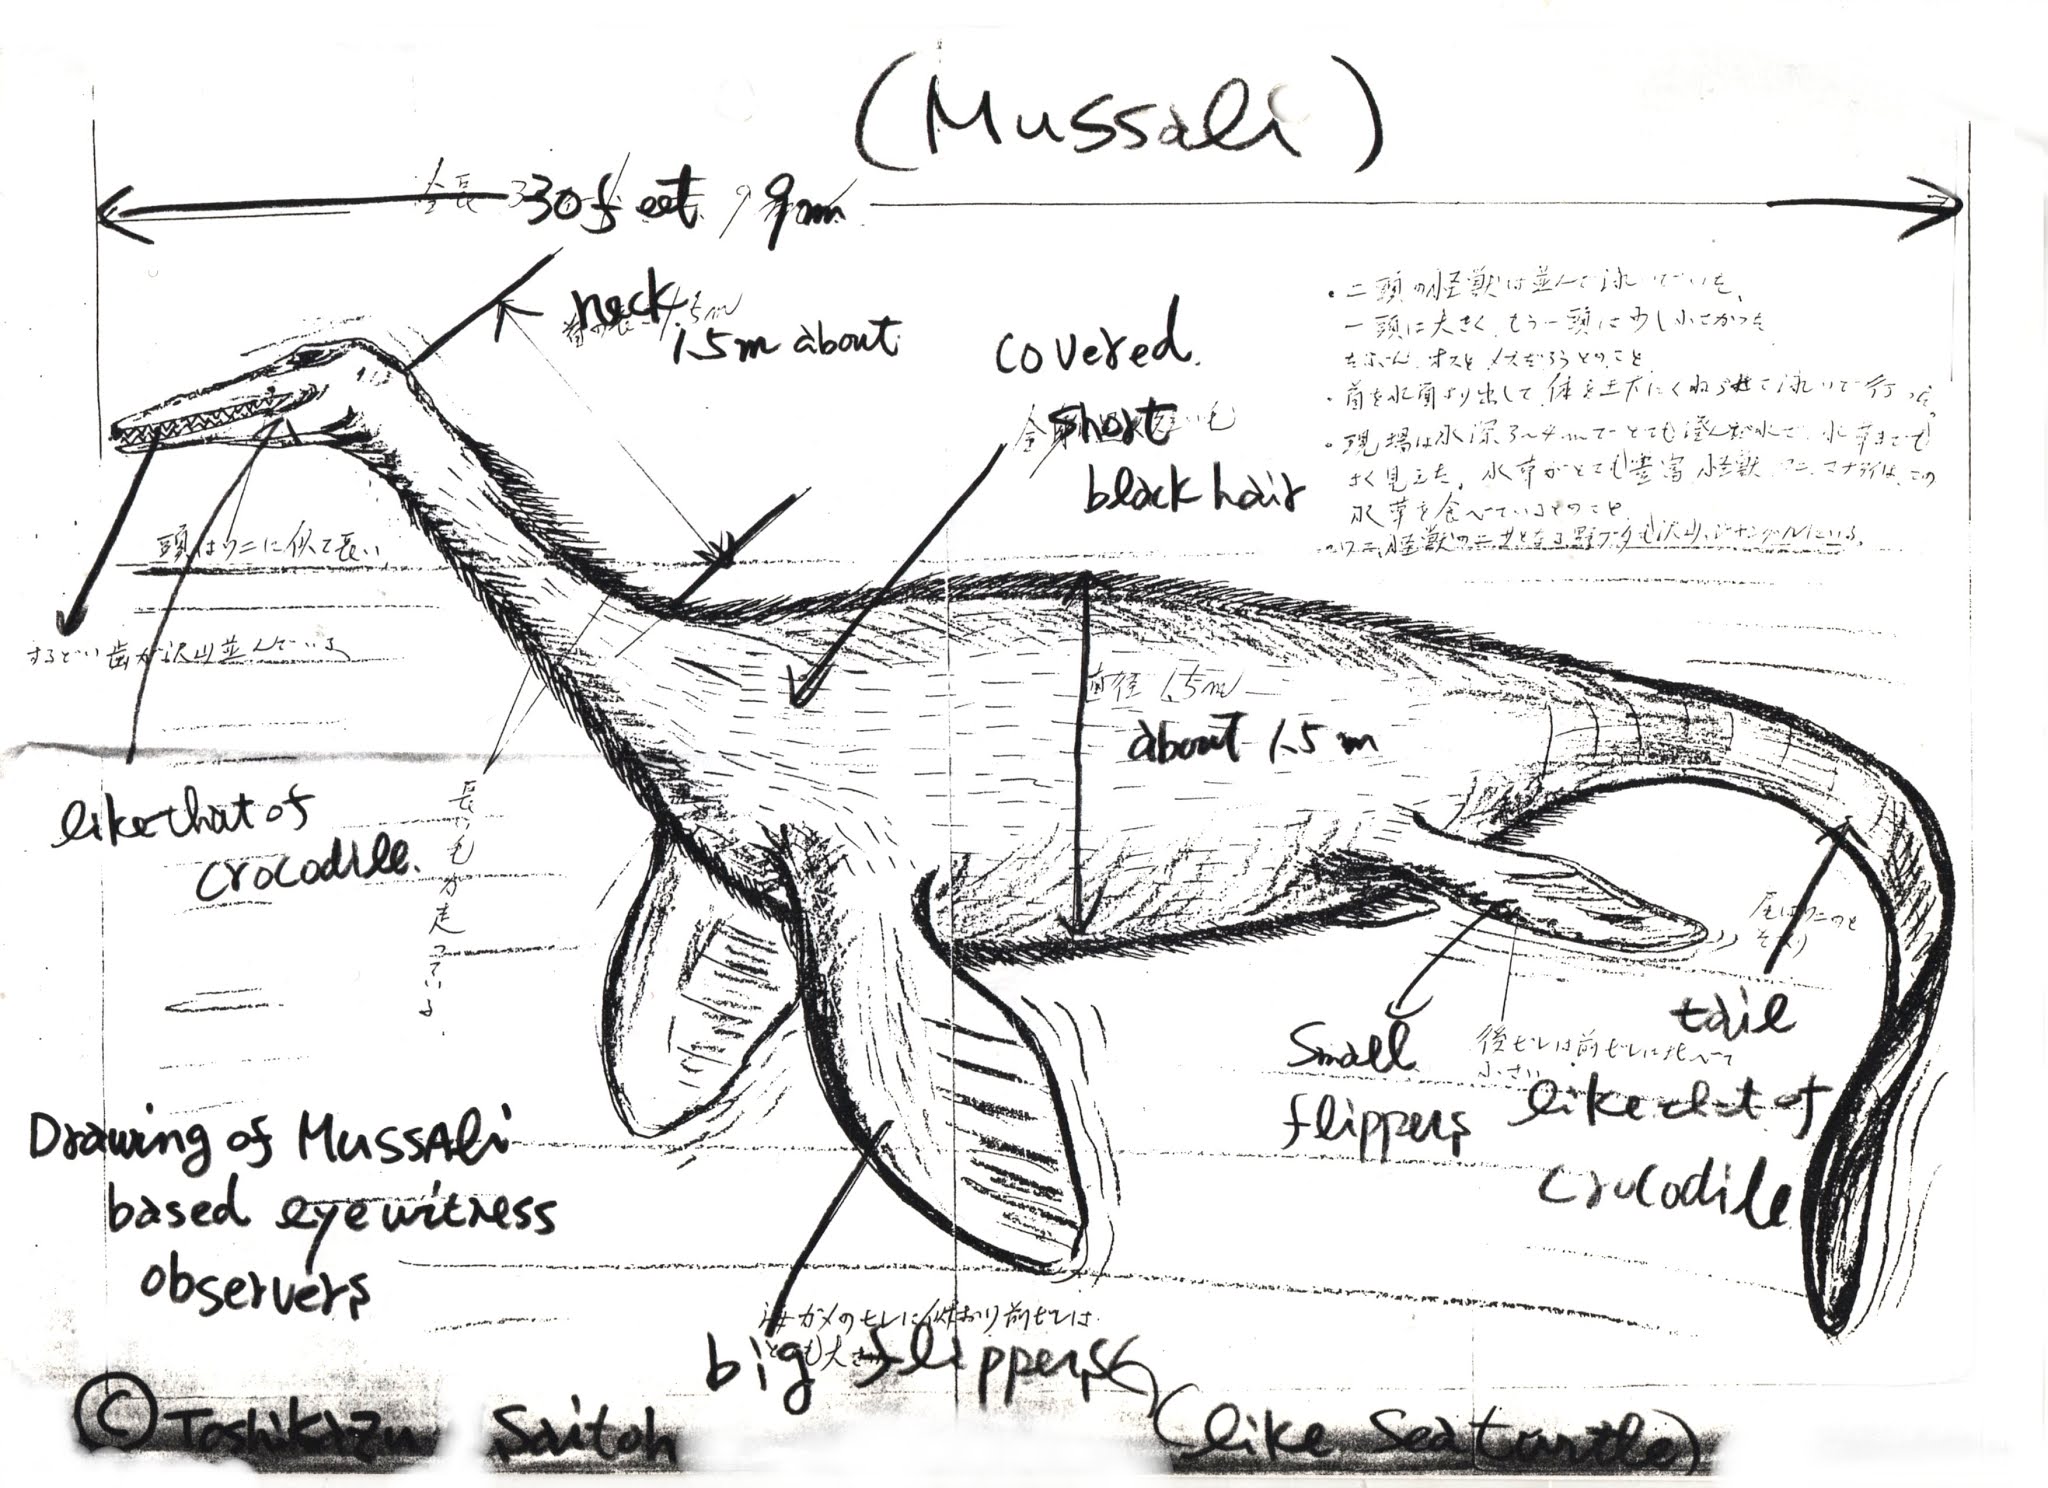 (Mussali)
30 feet, 9m
neck
1.5m about
covered
short
black hair
・二頭の怪獣は並んで泳いでいた。
一頭は大きく、もう一頭は少し小さかった
たぶん、オスとメスだろうとのこと
・首を水面より出して、体を上下にくねらせて泳いで行った。
・現場は水深3〜4mでとても澄んだ水で、水草までも
よく見えた。水草がとても豊富、怪獣、ワニ、マナティは、この
水草を食べているとのこと
頭はワニに似て長い
するどい歯が沢山並んでいる
直径 1.5m
about 1.5m
like that of
crocodile.
長い毛が走っている.
尾はワニのと
そっくり
tail
like that of
crocodile
small
flippers
後ヒレは前ヒレに比べて
小さい
Drawing of MussAli
based eyewitness
observers
海ガメのヒレに似ており前ヒレは
とても大きい
big flippers
(like Sea turtle)
© Toshikazu Saitoh